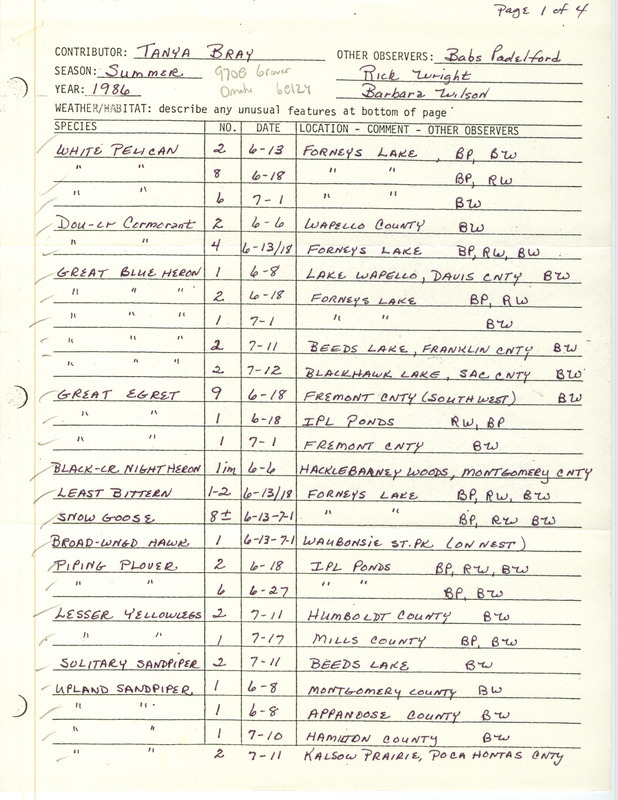 Page 1 of 4
CONTRIBUTOR: TANYA BRAY OTHER OBSERVERS: Babs Padelford
SEASON: Summer 9708 Grover Rick Wright
YEAR: 1986 Omaha 68124 Barbara Wilson
WEATHER/HABITAT: describe any unusual features at bottom of page
SPECIES NO. DATE LOCATION - COMMENT - OTHER OBSERVERS
WHITE PELICAN 2 6-13 FORNEYS LAKE, BP, BW
" " 8 6-18 " " BP, RW
" " 6 7-1 " " BW
Dou-cr Cormorant 2 6-6 WAPELLO COUNTY BW
" " 4 6-13/18 FORNEYS LAKE BP, RW, BW
GREAT BLUE HERON 1 6-8 LAKE WAPELLO, DAVIS CNTY BW
" " " 2 6-18 FORNEYS LAKE BP, RW
" " " 1 7-1 " " BW
" " " 2 7-11 BEEDS LAKE, FRANKLIN CNTY BW
" " " 2 7-12 BLACKHAWK LAKE, SAC CNTY BW
GREAT EGRET 9 6-18 FREMONT CNTY (SOUTHWEST) BW
" " 1 6-18 IPL PONDS RW, BP
" " 1 7-1 FREMONT CNTY BW
BLACK-CR NIGHT HERON 1im 6-6 HACKLEBARNEY WOODS, MONTGOMERY CNTY
LEAST BITTERN 1-2 6-13/18 FORNEYS LAKE BP, RW, BW
SNOW GOOSE 8± 6-13-7-1 " " BP, RW BW
BROAD-WNGD HAWK 1 6-13-7-1 WAUBONSIE ST. PK (ON NEST)
PIPING PLOVER 2 6-18 IPL PONDS BP, RW, BW
" " 6 6-27 " " BP, BW
LESSER YELLOWLEGS 2 7-11 HUMBOLDT COUNTY BW
" " 1 7-17 MILLS COUNTY BP, BW
SOLITARY SANDPIPER 2 7-11 BEEDS LAKE BW
UPLAND SANDPIPER 1 6-8 MONTGOMERY COUNTY BW
" " 1 6-8 APPANOOSE COUNTY BW
" " 1 7-10 HAMILTON COUNTY BW
" " 2 7-11 KALSOW PRAIRIE, POCAHONTAS CNTY